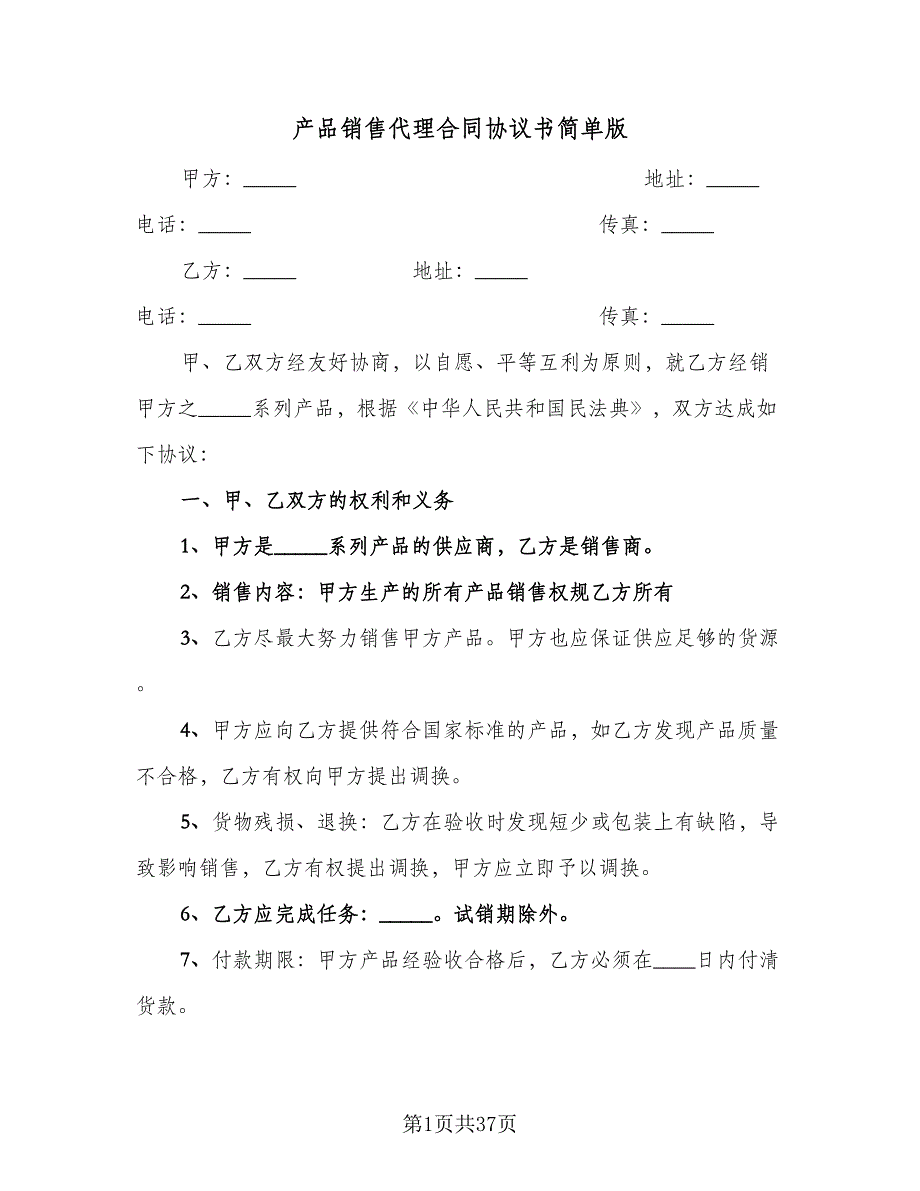 产品销售代理合同协议书简单版
甲方：_____ 地址：_____
电话：_____ 传真：_____
乙方：_____ 地址：_____
电话：_____ 传真：_____
甲、乙双方经友好协商，以自愿、平等互利为原则，就乙方经销
甲方之_____系列产品，根据《中华人民共和国民法典》，双方达成如
下协议：
一、甲、乙双方的权利和义务
1、甲方是_____系列产品的供应商，乙方是销售商。
2、销售内容：甲方生产的所有产品销售权规乙方所有
3、乙方尽最大努力销售甲方产品。甲方也应保证供应足够的货源
。
4、甲方应向乙方提供符合国家标准的产品，如乙方发现产品质量
不合格，乙方有权向甲方提出调换。
5、货物残损、退换：乙方在验收时发现短少或包装上有缺陷，导
致影响销售，乙方有权提出调换，甲方应立即予以调换。
6、乙方应完成任务：_____。试销期除外。
7、付款期限：甲方产品经验收合格后，乙方必须在____日内付清
货款。
第1页共37页